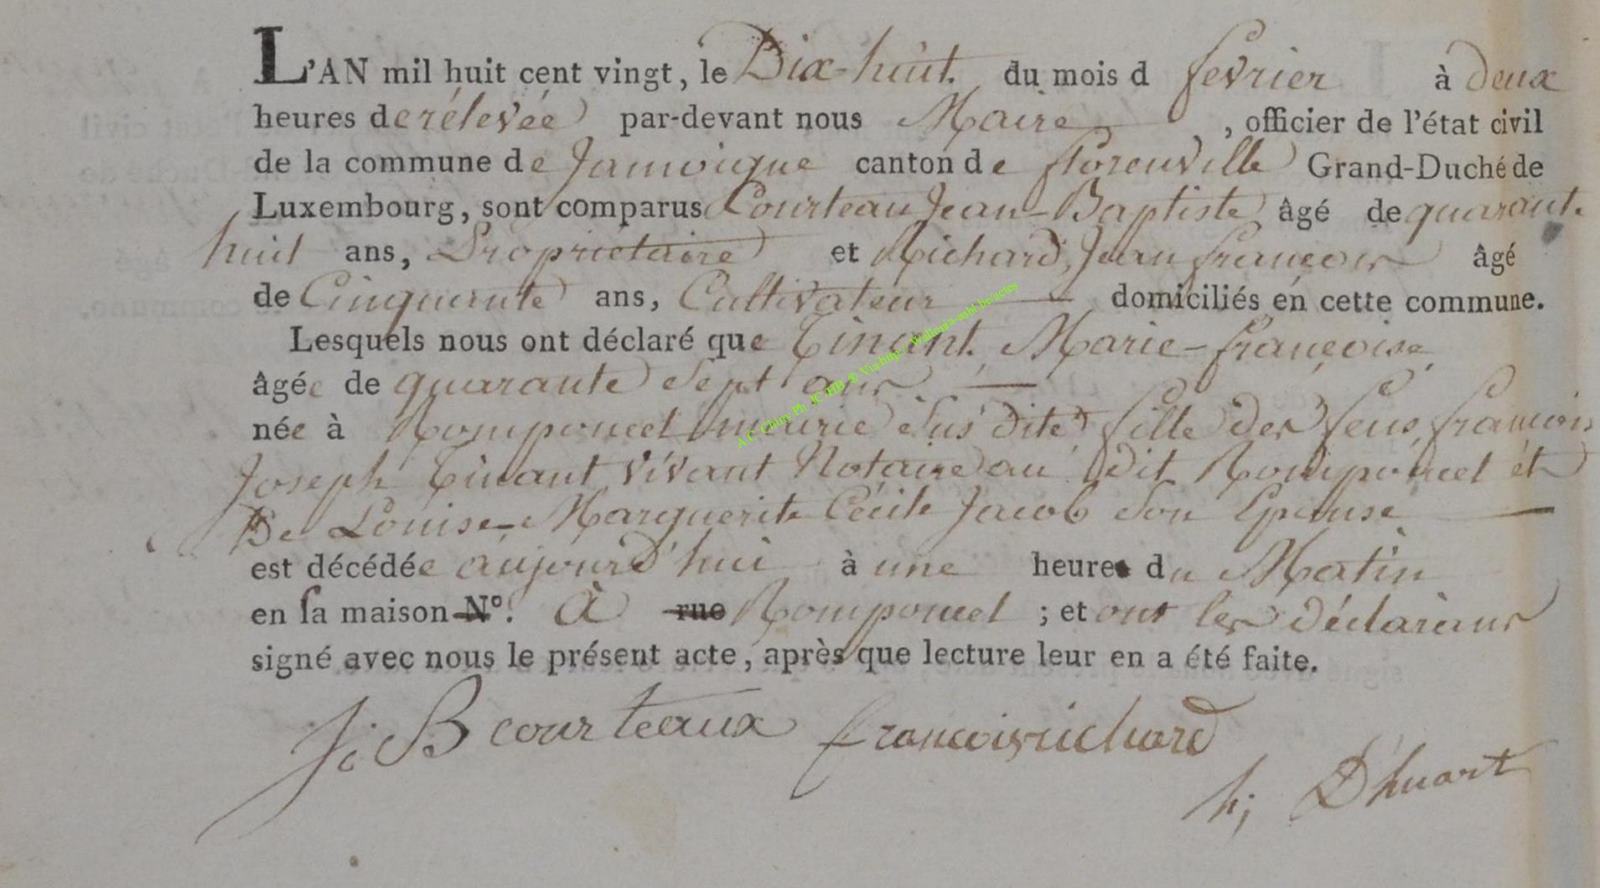 L'AN mil huit cent vingt, le Dix-huit. du mois d fevrier à deux
heures de rélevée par-devant nous Maire, officier de l'état civil
de la commune de Jamoigne canton de florenville Grand-Duché de
Luxembourg, sont comparus Courteau Jean-Baptiste âgé de quarante
huit ans, Proprietaire et Richard, Jean françois âgé
de Cinquante ans, Cultivateur domiciliés en cette commune.
Lesquels nous ont déclaré que Tinant, Marie-françoise
âgée de quarante Sept ans
née à Romponcel mairie sus dite fille des feus françois
Joseph Tinant vivant Notaire au dit Romponcel et
De Louise-Marguerite Cécile Jacob son Epouse
est décédée aujourd'hui à une heure du Matin
en sa maison N°. à rue Romponcel ; et ont les déclarans
signé avec nous le présent acte, après que lecture leur en a été faite.
J: B courteaux francois richard
h; D'huart